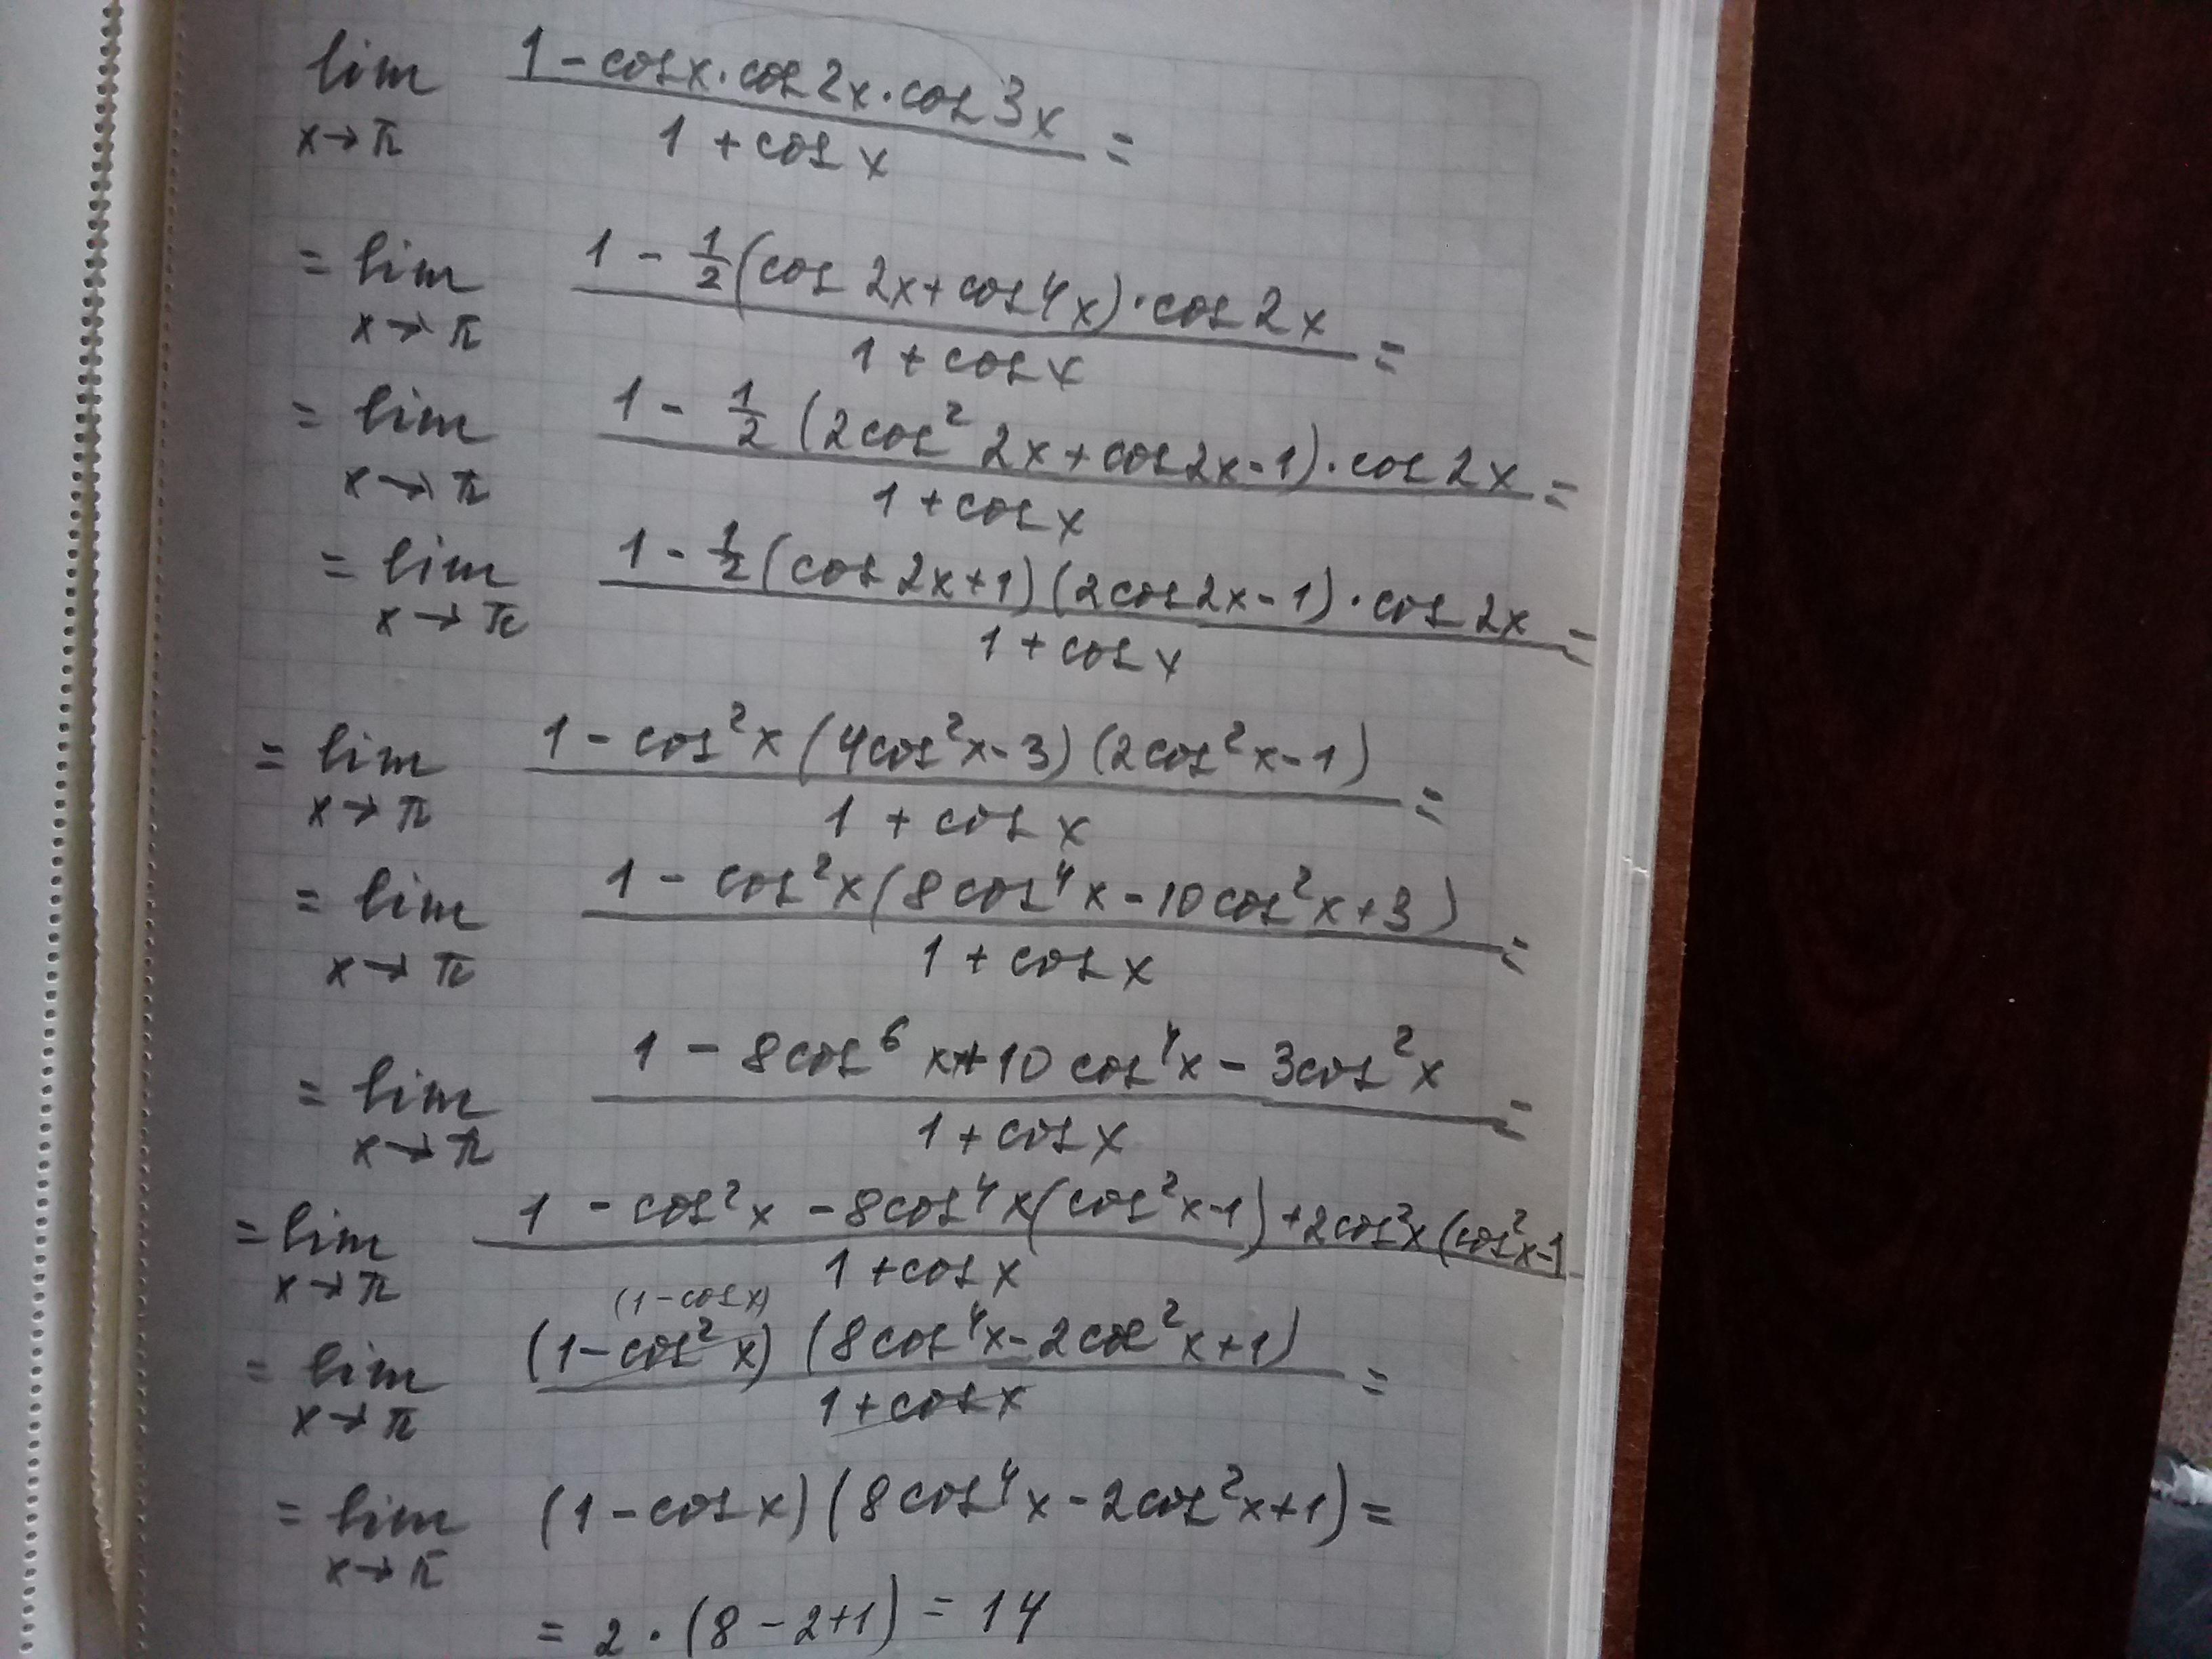 lim 1 - cos x · cos 2x · cos 3x
x → π 1 + cos x =
= lim 1 - 1/2 (cos 2x + cos 4x) · cos 2x
x → π 1 + cos x =
= lim 1 - 1/2 (2cos² 2x + cos 2x - 1) · cos 2x =
x → π 1 + cos x
= lim 1 - 1/2 (cos 2x + 1) (2cos 2x - 1) · cos 2x =
x → π 1 + cos x
= lim 1 - cos² x (4cos² x - 3) (2cos² x - 1) =
x → π 1 + cos x
= lim 1 - cos² x (8cos⁴ x - 10cos² x + 3) =
x → π 1 + cos x
= lim 1 - 8cos⁶ x + 10cos⁴ x - 3cos² x =
x → π 1 + cos x
= lim 1 - cos² x - 8cos⁴ x (cos² x - 1) + 2cos² x (cos² x - 1)
x → π 1 + cos x
(1 - cos x)
= lim (1 - cos² x) (8cos⁴ x - 2cos² x + 1) =
x → π 1 + cos x
= lim (1 - cos x) (8cos⁴ x - 2cos² x + 1) =
x → π
= 2 · (8 - 2 + 1) = 14